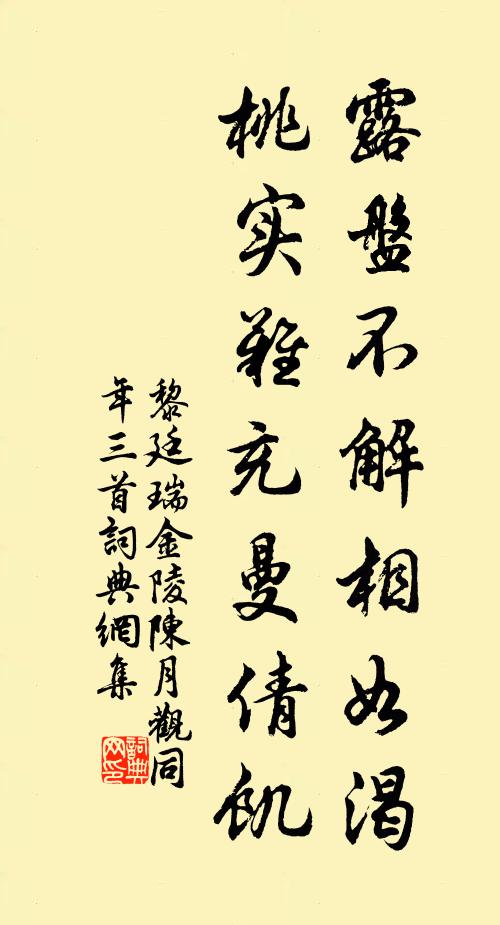 露盤不解相如渴
桃实難充曼倩飢
黎廷瑞金陵陳月觀同
年三首詞典網集
詞典
网印